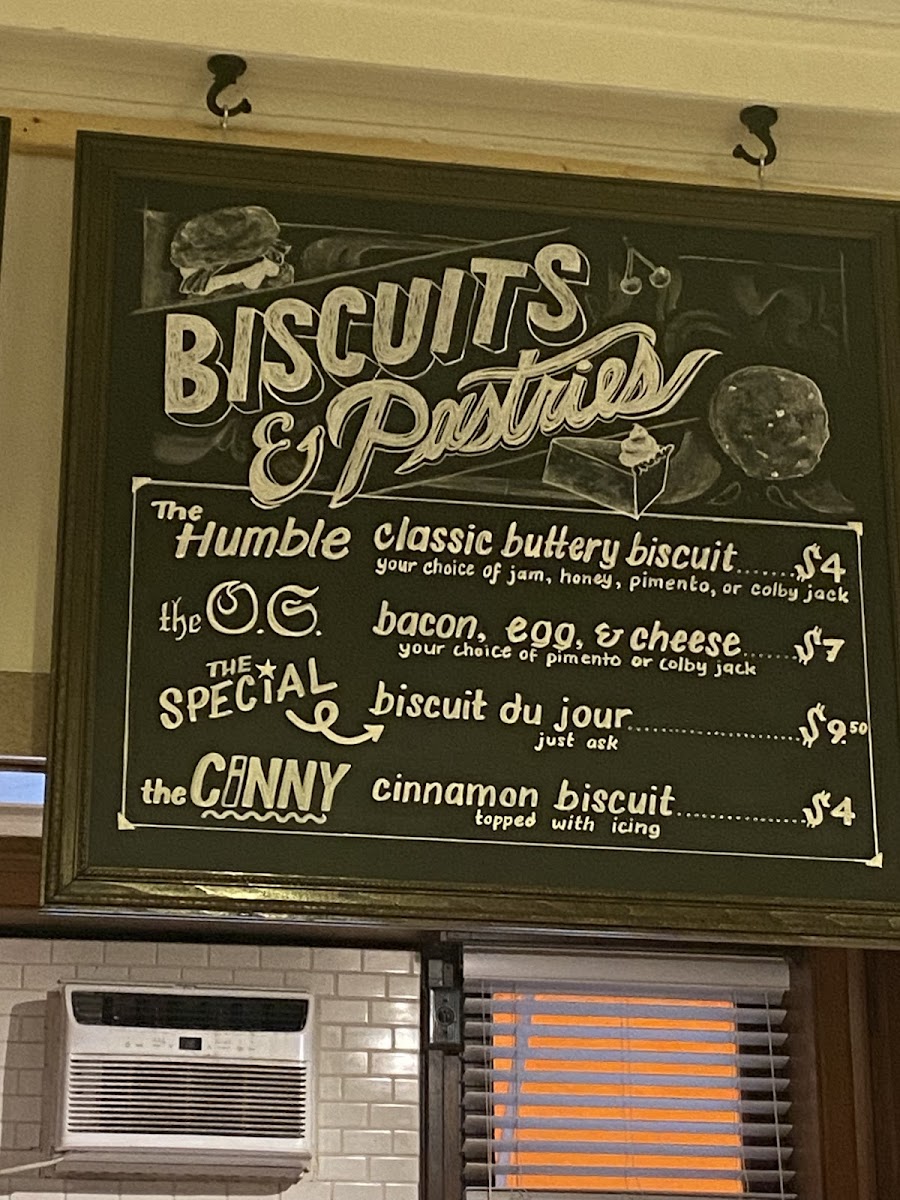 BISCUITS
& Pastries
The Humble classic buttery biscuit.......$4
your choice of jam, honey, pimento, or colby jack
the O.G. bacon, egg, & cheese......$7
your choice of pimento or colby jack
THE SPECiAL biscuit du jour....................$9.50
just ask
the CiNNY cinnamon biscuit...............$4
topped with icing